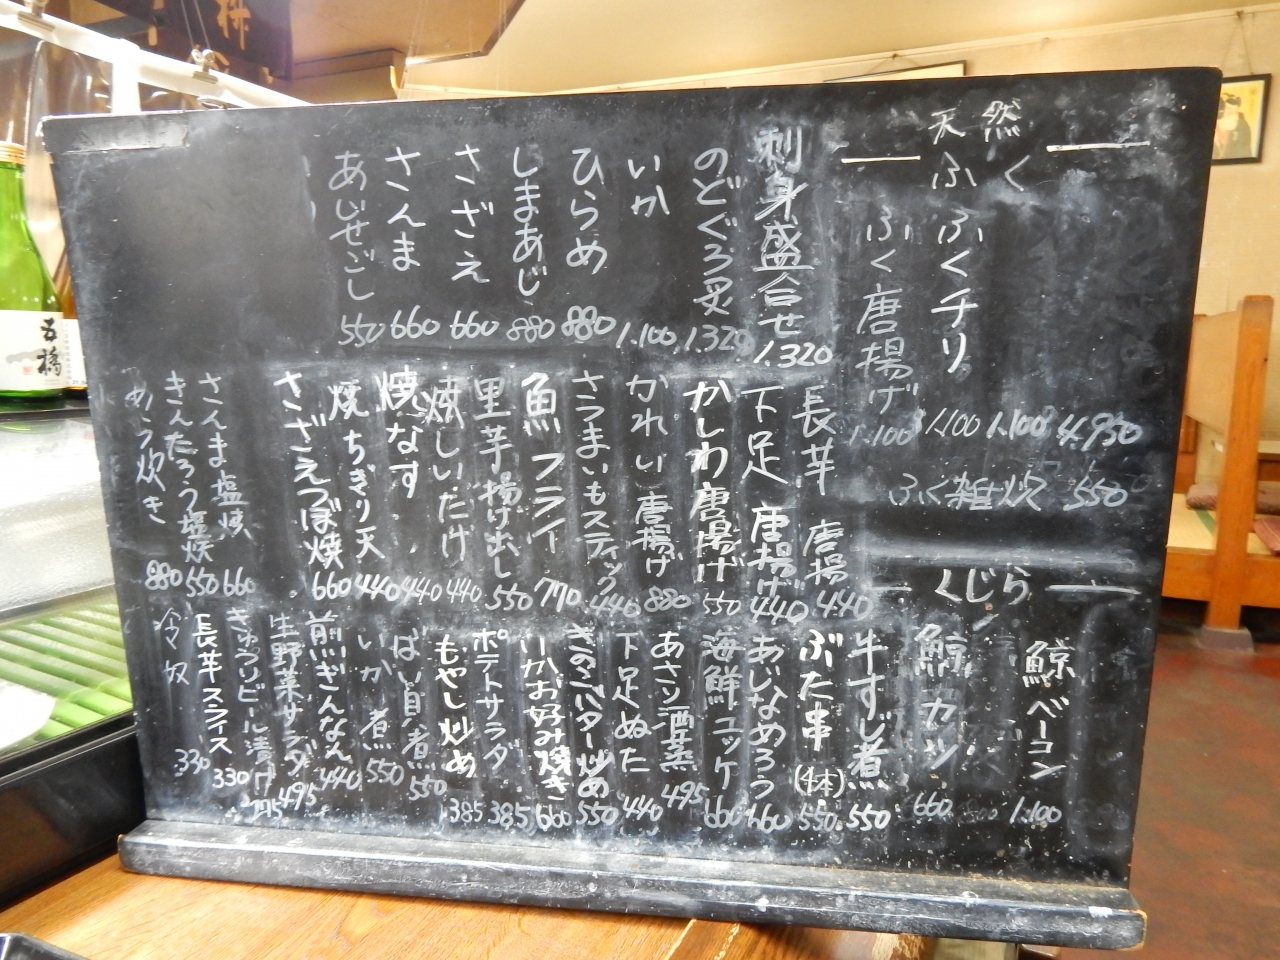 天然
ふく
ふくチリ
ふく唐揚げ
1.100
1.100
1.100
4.950
ふく雑炊 550
くじら
鯨ベーコン 1.100
鯨カツ 660
刺身盛合せ 1.320
のどぐろ炙 1.320
いか 1.100
ひらめ 880
しまあじ 880
さざえ 660
さんま 660
あじせごし 550
長芋唐揚 440
下足唐揚げ 440
かしわ唐揚げ 550
かれい唐揚げ 880
さつまいもスティック 440
魚フライ 770
里芋揚げ出し 550
焼しいたけ 440
焼なす 440
焼ちぎり天 440
さざえつぼ焼 660
さんま塩焼 660
きんたろう塩焼 550
炊き 880
牛すじ煮 550
ぶた串(4本) 550
あじなめろう 660
海鮮ユッケ 660
あさり酒蒸 495
下足ぬた 440
きのこバター炒め 550
いかお好み焼き 660
ポテトサラダ 385
もやし炒め 385
ばい貝煮 550
いか煮 550
煎ぎんなん 440
生野菜サラダ 495
きゅうりビール漬け 275
長芋スライス 330
冷奴 330
五橋